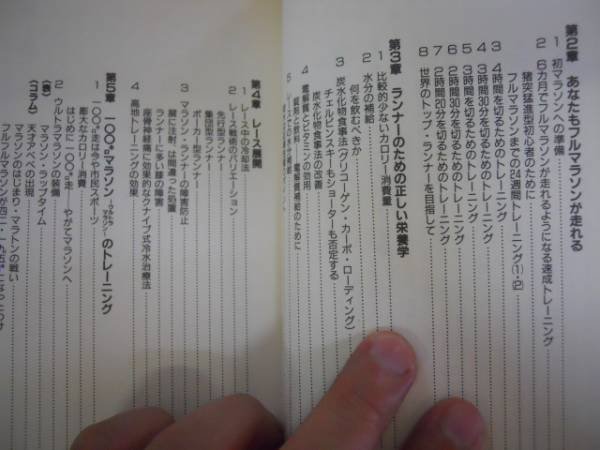 第2章 あなたもフルマラソンが走れる
1 初マラソンへの準備
猪突猛進型初心者のために
2 6カ月でフルマラソンが走れるようになる速成トレーニング
フルマラソンまでの24週間トレーニング(1・2)
3 4時間を切るためのトレーニング
4 3時間30分を切るためのトレーニング
5 3時間を切るためのトレーニング
6 2時間30分を切るためのトレーニング
7 2時間20分を切るためのトレーニング
8 世界のトップ・ランナーを目指して
第3章 ランナーのための正しい栄養学
1 比較的少ないカロリー消費量
2 水分の補給
何を飲むべきか
3 炭水化物食事法(グリコーゲン・カーボ・ローディング)
チェルピンスキーもショーターも否定する
炭水化物食事法の改善
4 電解質とビタミンの効用
電解質補給のために
5
第4章 レース展開
1 レース中の冷却法
2 レース戦術のバリエーション
先行型ランナー
集団型ランナー
ポーカー型ランナー
3 マラソン・ランナーの障害防止
腱に注射は間違った処置
ランナーに多い膝の障害
座骨神経痛に効果的なクナイプ式冷水治療法
4 高地トレーニングの効果
第5章 一〇〇㌔マラソン(ウルトラマラソン)のトレーニング
1 一〇〇㌔走は今や市民スポーツ
はじめに一〇〇㌔走 やがてマラソンへ
膨大なカロリー消費
2 ウルトラマラソンの装備
(表) マラソン・ラップタイム
(コラム) 天才アベベの出現
マラソンのはじまり・マラトンの戦い
フルマラソンが四二・一九五㌔になったわけ